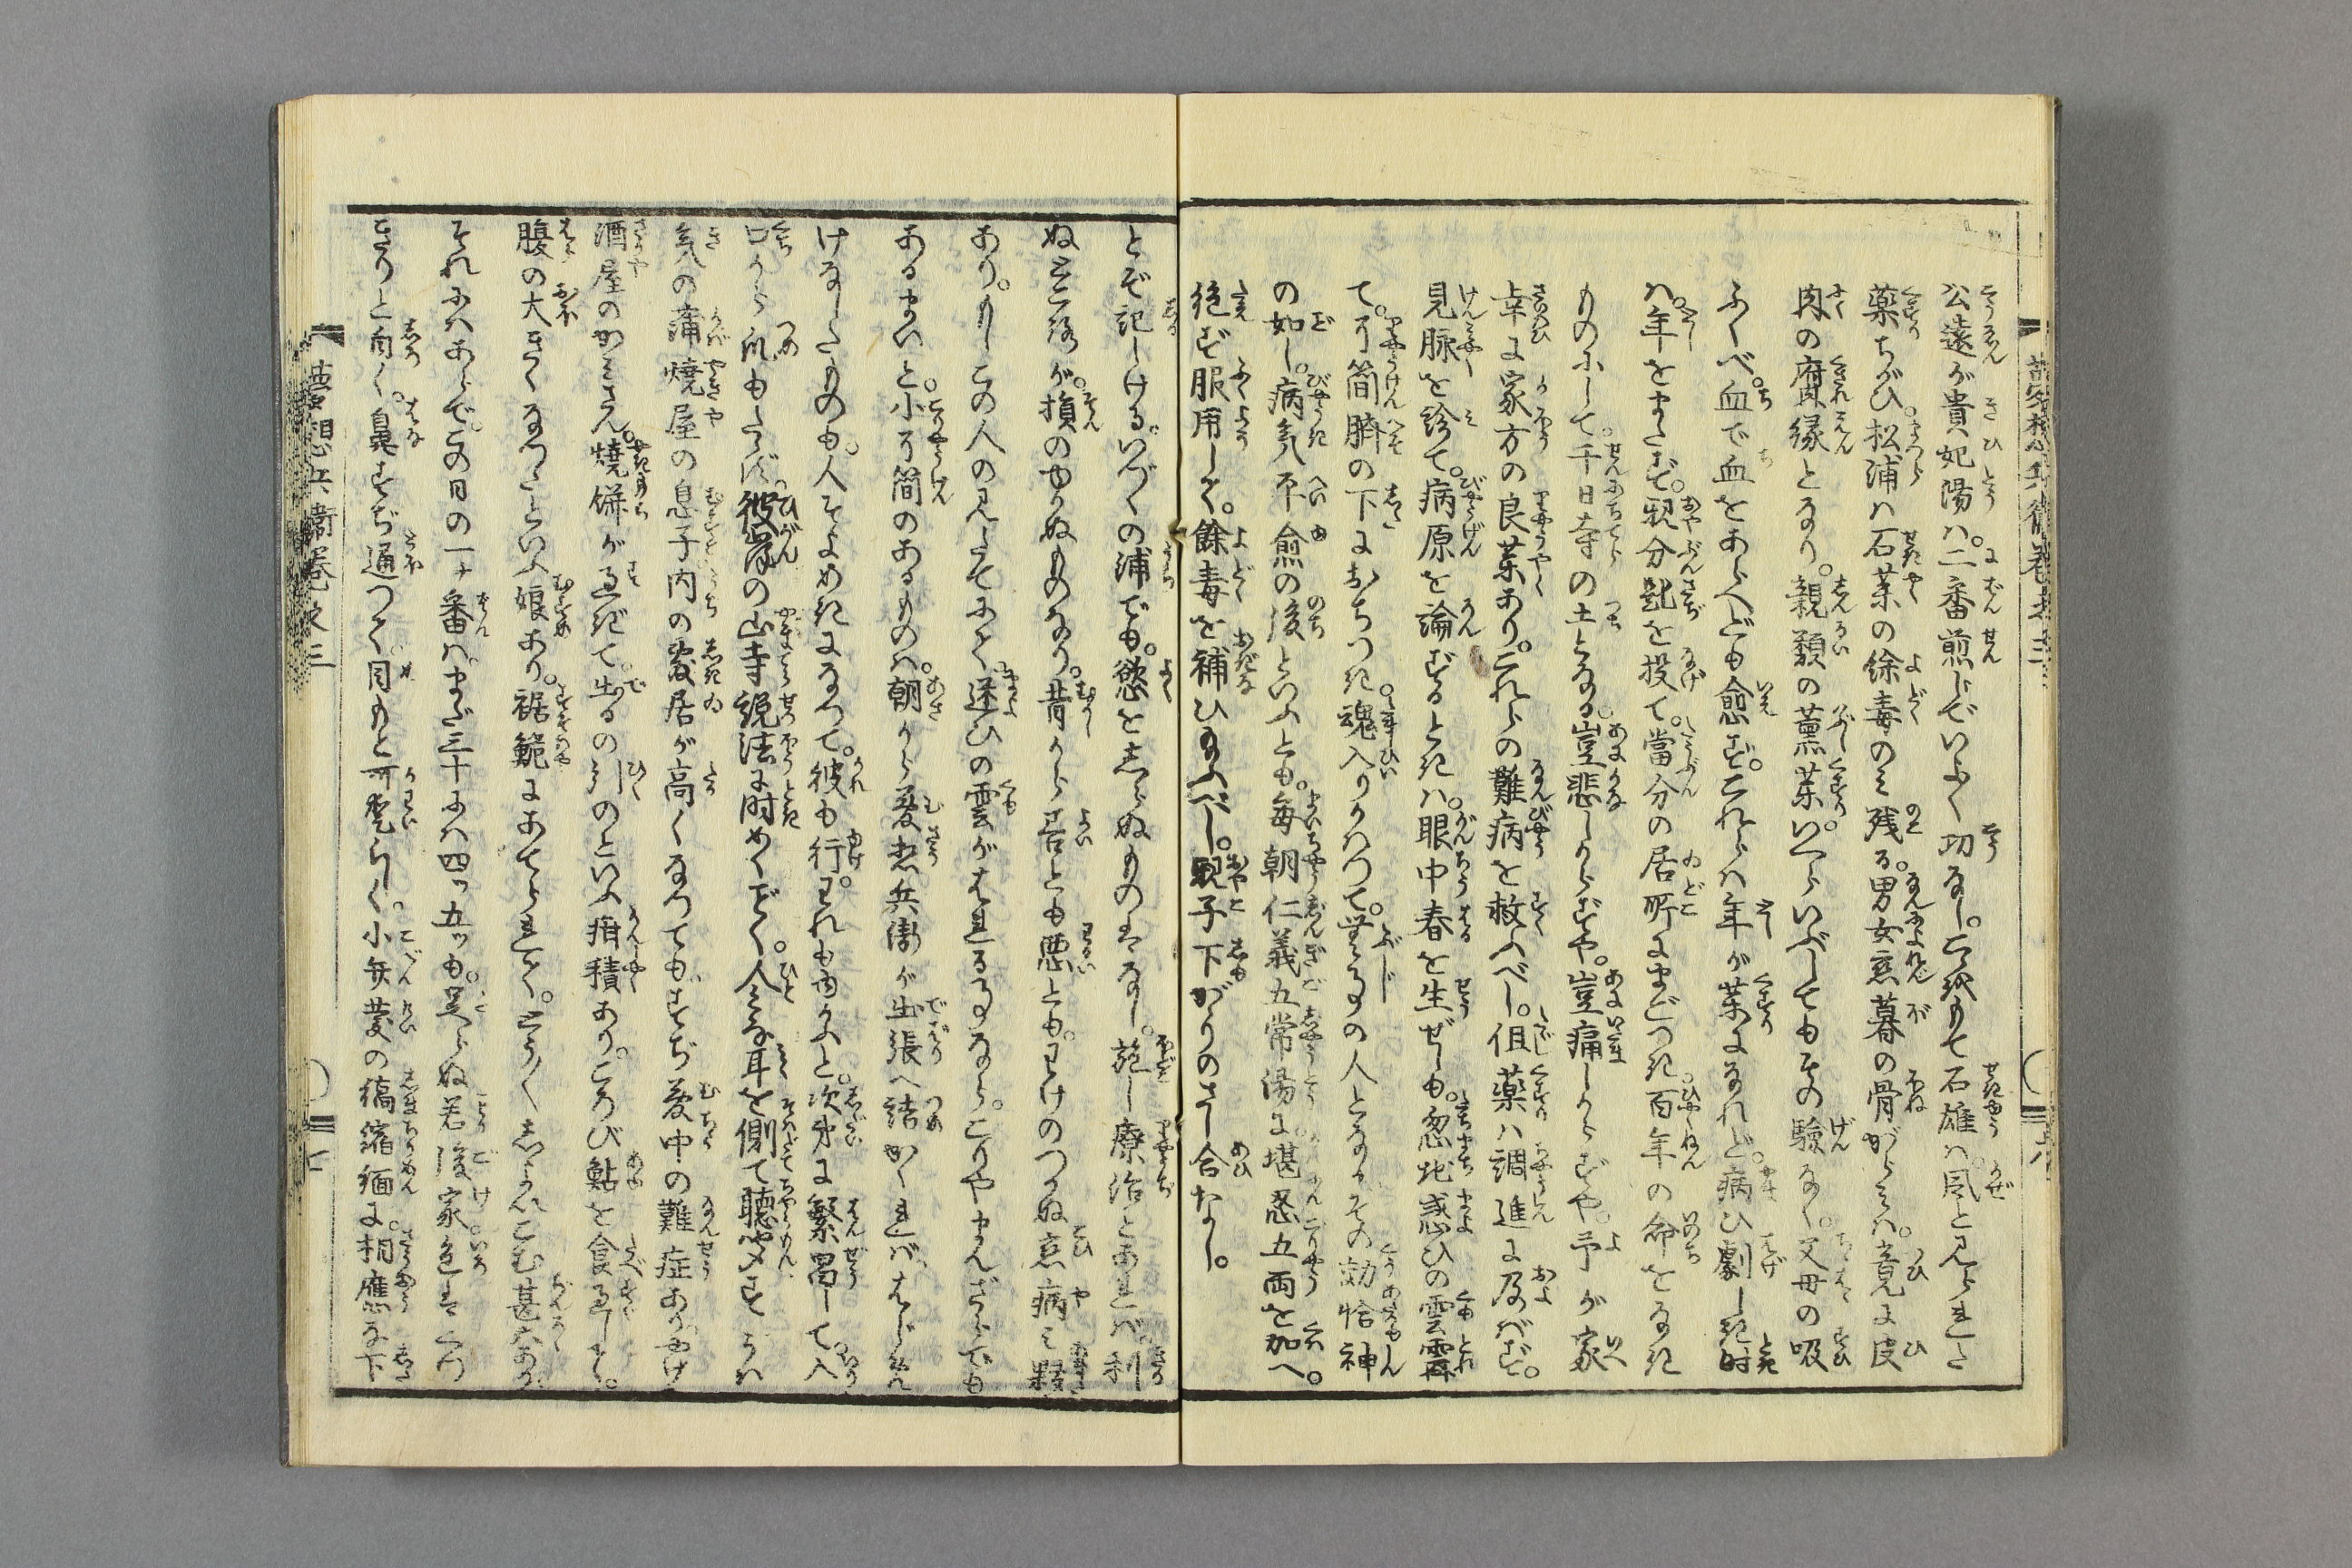 公遠が貴妃湯ハ。二番煎じでいふく功なし。こゝをもて石雄ハ。風と見られた
薬ちがひ。松浦ハ石薬の餘毒のミ残る。男女恋慕の骨がらミハ。竟に皮
肉の腐縁となり。親類の薫薬。いくらいぶしてもその驗なく。父母の吸
ふくべ。血で血をあらへども愈ず。これらハ年が薬になれど。病ひ劇しき時
ハ。年をまたず。親分匙を投て。當分の居所にまごつき。百年の命をなき
ものにして。千日寺の土となる。豈悲しからずや。豈痛しからずや。予が家
幸に家方の良薬あり。これらの難病を救ふべし。但薬ハ調進に及ばず。
見脉を診て。病原を論ずるときハ。眼中春を生ぜしも。忽地惑ひの雲霽
て。了簡臍の下におちつき。魂入りかハつて。無事の人となる。その効恰神
の如し。病気平愈の後といふとも。毎朝仁義五常湯に堪忍五両を加へ。
絶ず服用して。餘毒を補ひ給ふべし。親子下がりのさし合なし。
とぞ記しける。いづくの浦でも。慾をしらぬものはなし。施し療治とあれば。利
ぬところが。損のゆかぬものなり。昔から善とも悪とも。わけのつかぬ恋病ミ夥
あり。もしこの人の見たてにて。迷ひの雲がはれるならこりやまんざらでも
あるまいと。小了簡のあるものハ。朝から夢想兵衛が出張へ詰かくれば。はじめん
けなしたものも。人ぞよめきになつて。彼も行。われも向かふと。次第に繁昌して。入
口から爪もたゝず。彼岸の山寺説法に時めくごとく。人ミな耳を側て聴聞す。うハ
気の蒲焼屋の息子内の敷居が高くなつても。すぢ夢中の難症あり。ぬけ
酒屋のかミさん。焼餅が過ぎて。出るの引のといふ疳積あり。ころび鮎を食過して。
腹の大きくなつたといふ娘あり。裾鮠にあてられて。とう〳〵しよいこむ甚六あり
それにハあらでこの日の一ト番ハ。まだ三十にハ四ツ五ツも。足らぬ若後家色はくつ
きりと白く。鼻すぢ通つて。目もと可愛らしく。小紋裏の縞縮緬に。相應な下
夢想兵衛巻之三
七